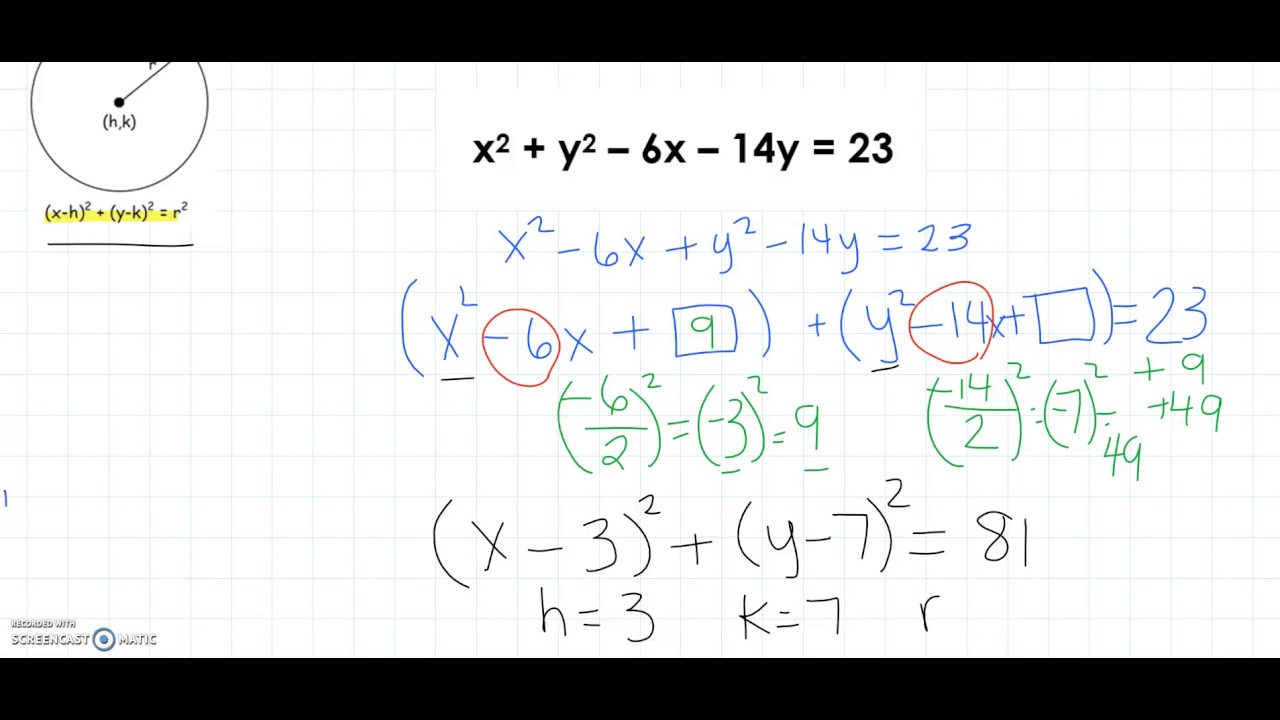 r
(h,k)
(x-h)² + (y-k)² = r²
x² + y² – 6x – 14y = 23
x² - 6x + y² - 14y = 23
(x² - 6x + 9) + (y² - 14x + □) = 23
+ 9
(-6/2)² = (-3)² = 9
(-14/2)² = (-7)² = 49
+49
(x - 3)² + (y - 7)² = 81
h = 3 k = 7 r
1
RECORDED WITH
SCREENCAST MATIC